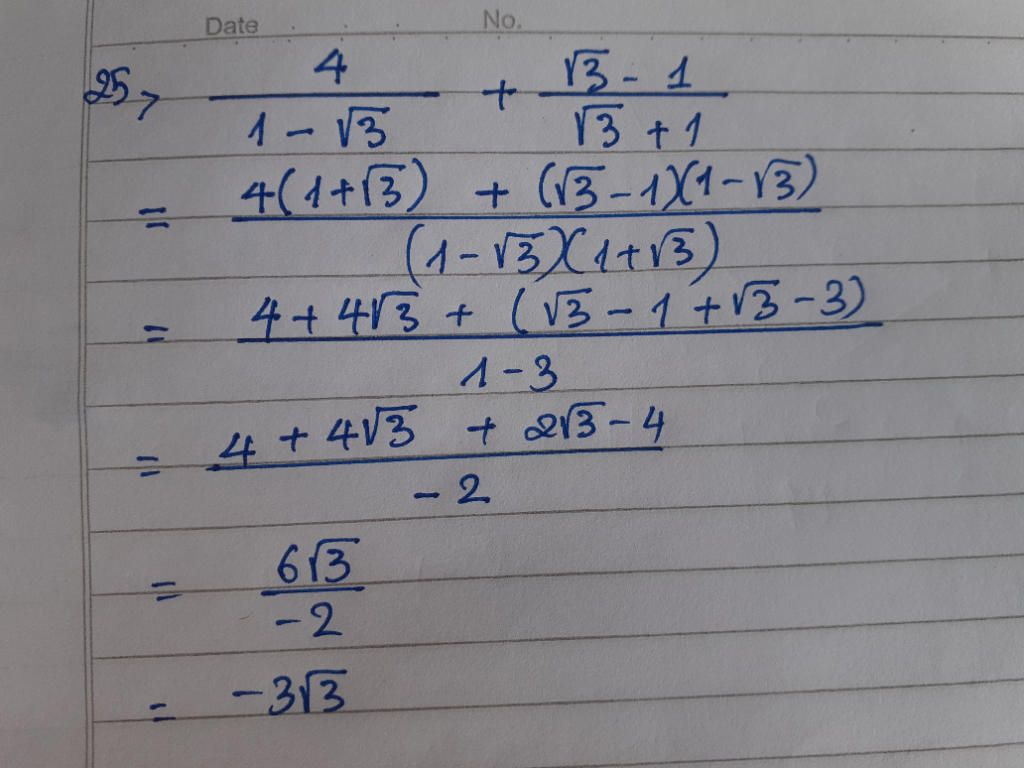 Date No.
25, 4 / (1 - √3) + (√3 - 1) / (√3 + 1)
= (4(1+√3) + (√3-1)(1-√3)) / ((1-√3)(1+√3))
= (4 + 4√3 + (√3 - 1 + √3 - 3)) / (1 - 3)
= (4 + 4√3 + 2√3 - 4) / (-2)
= 6√3 / -2
= -3√3